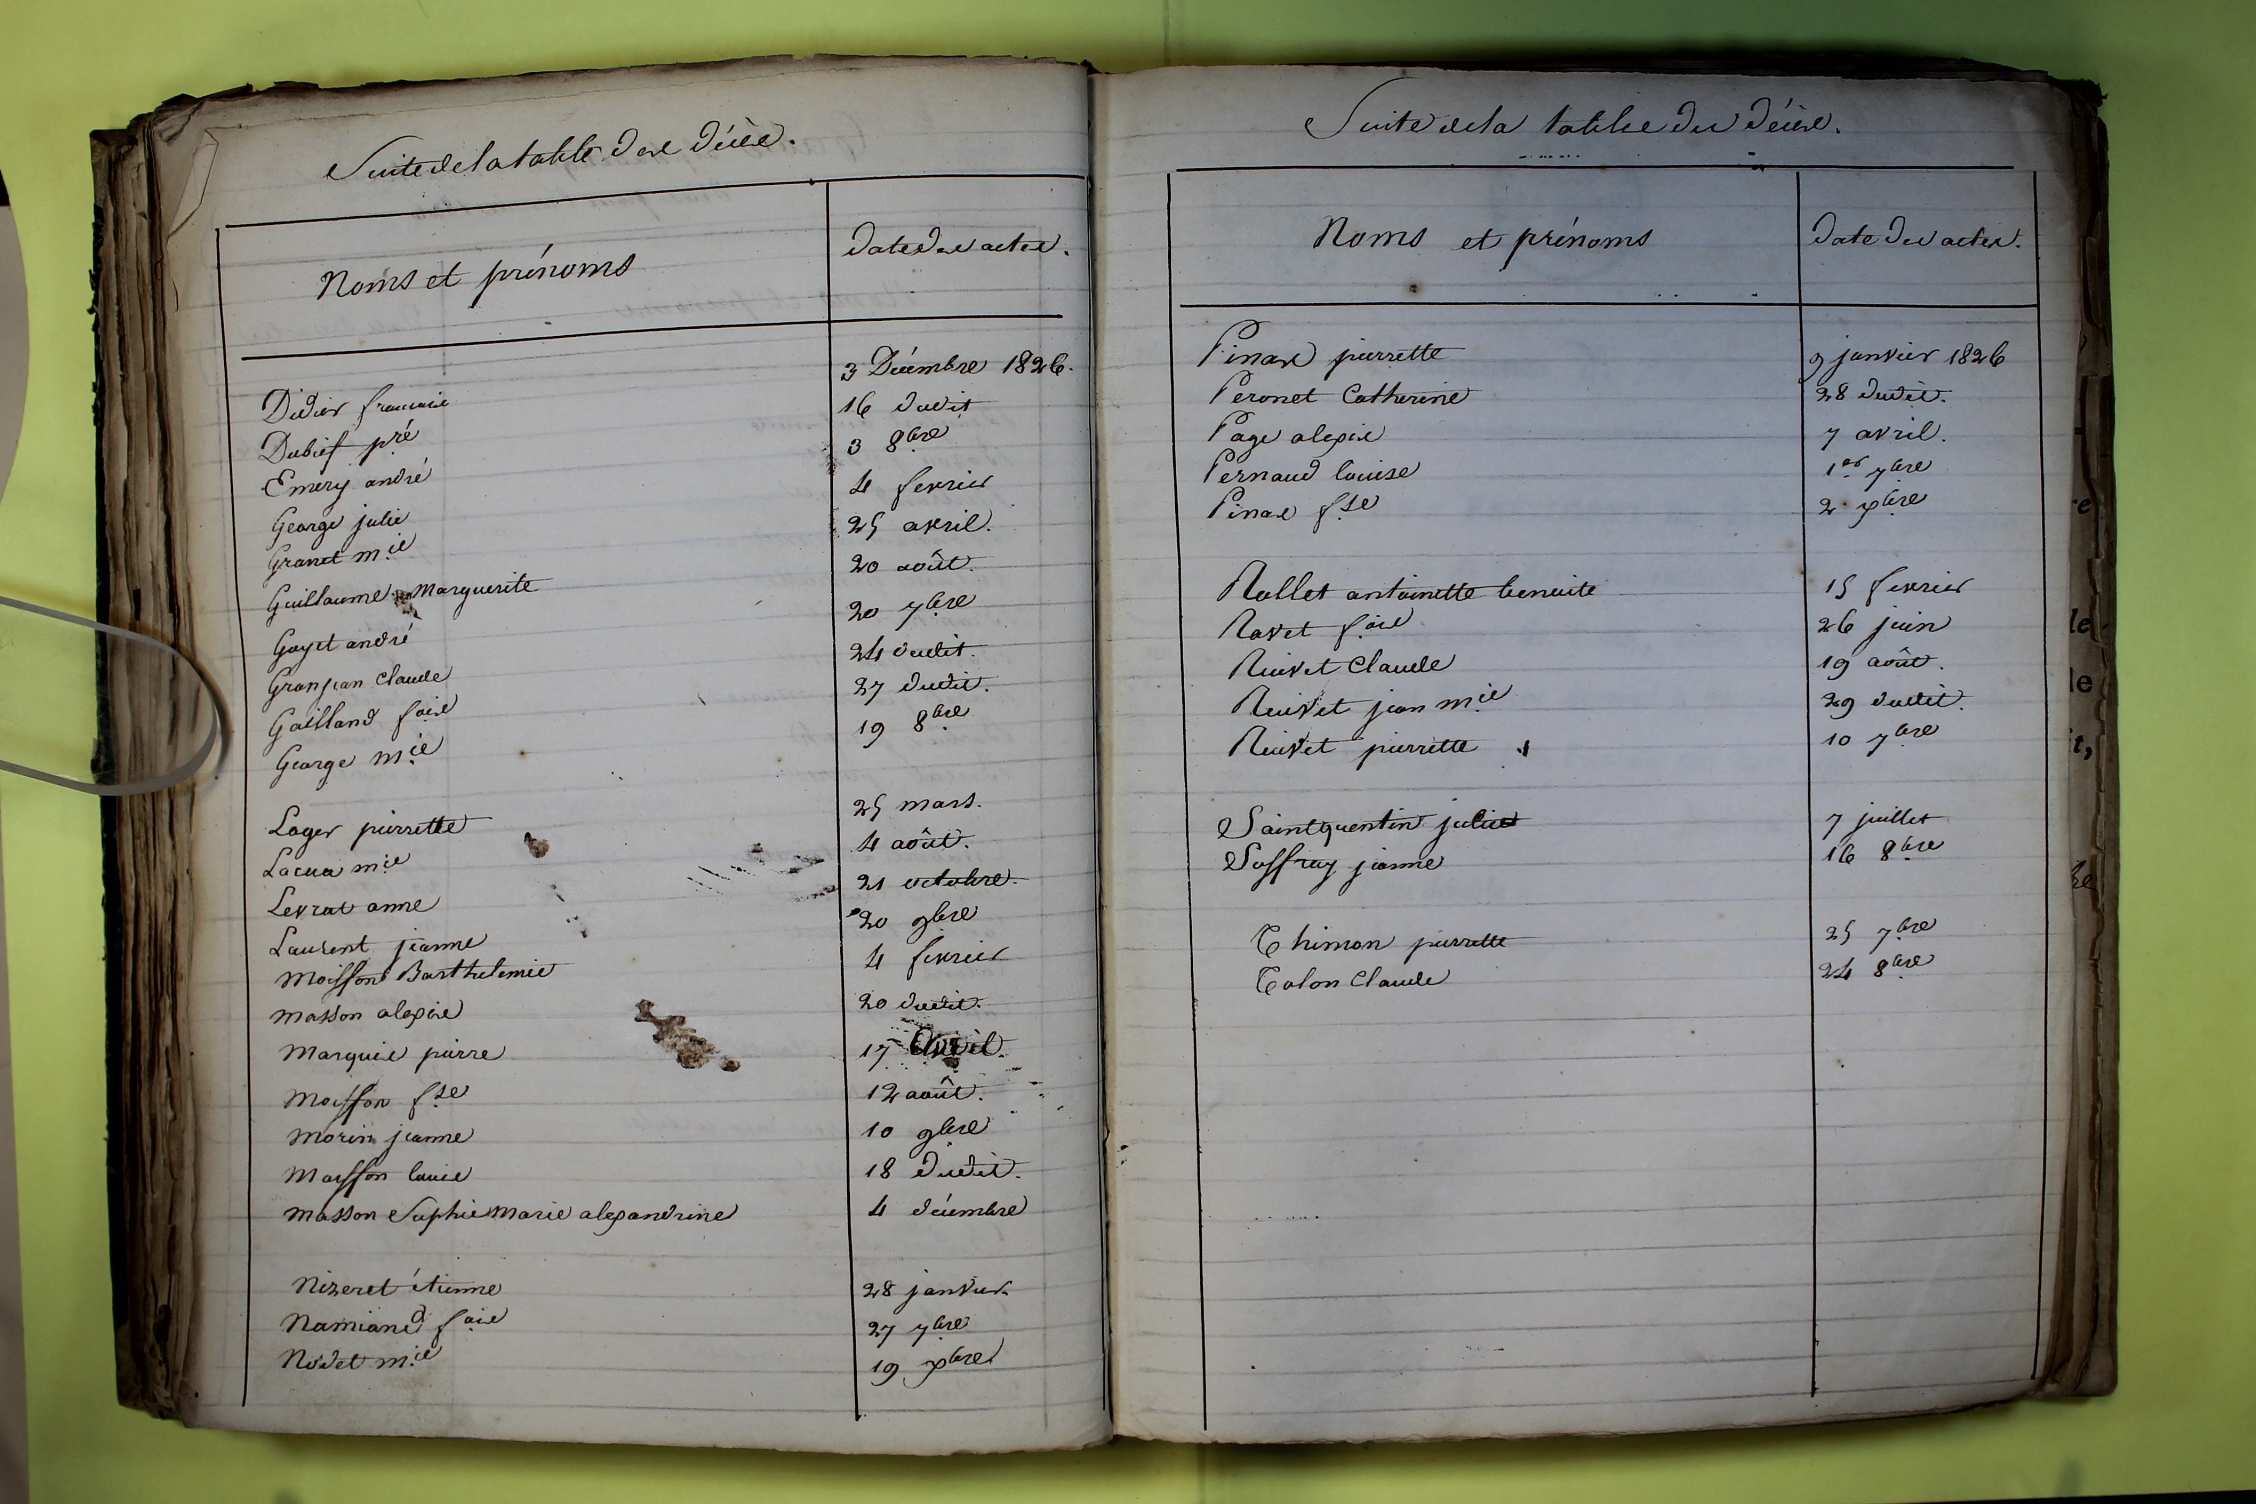 Suite de la table des décès.
Noms et prénoms
date des actes.
Didier francois 3 Décembre 1826.
Dubief pre 16 dudit
Emery andré 3 8bre
George julie 4 fevrier
Granet mie 25 avril.
Guillaume Marguerite 20 août.
Goyet andré 20 7bre
Granjean Claude 24 dudit.
Gailland foise 27 dudit.
George mie 19 8bre
Loger pierrette 25 mars.
Lacua mie 4 août.
Levrat anne 21 octobre.
Laurent jeanne 20 9bre
Moisson Barthelemie 4 fevrier
Masson alexis 20 dudit.
Marquis pierre 17 avril.
Moisson fse 12 août.
Morin jeanne 10 9bre
Moisson louis 18 dudit.
Masson Sophie Marie alexandrine 4 décembre
Nizeret étienne 28 janvier
Namiand fois 27 7bre
Nodet mie 19 xbre
Suite de la table des décès.
Noms et prénoms
date des actes.
Pinas pierrette 9 janvier 1826
Peronet Catherine 28 dudit.
Page alexis 7 avril.
Pernaud louise 1er 7bre
Pinas fse 2 xbre
Rollet antoinette benoite 15 fevrier
Ravet fois 26 juin
Ruivet Claude 19 août.
Ruivet jean mie 29 dudit.
Ruivet pierrette 10 7bre
Saintquentin julie 7 juillet
Soffray jeanne 16 8bre
Thimon pierrette 25 7bre
Tolon Claude 24 8bre